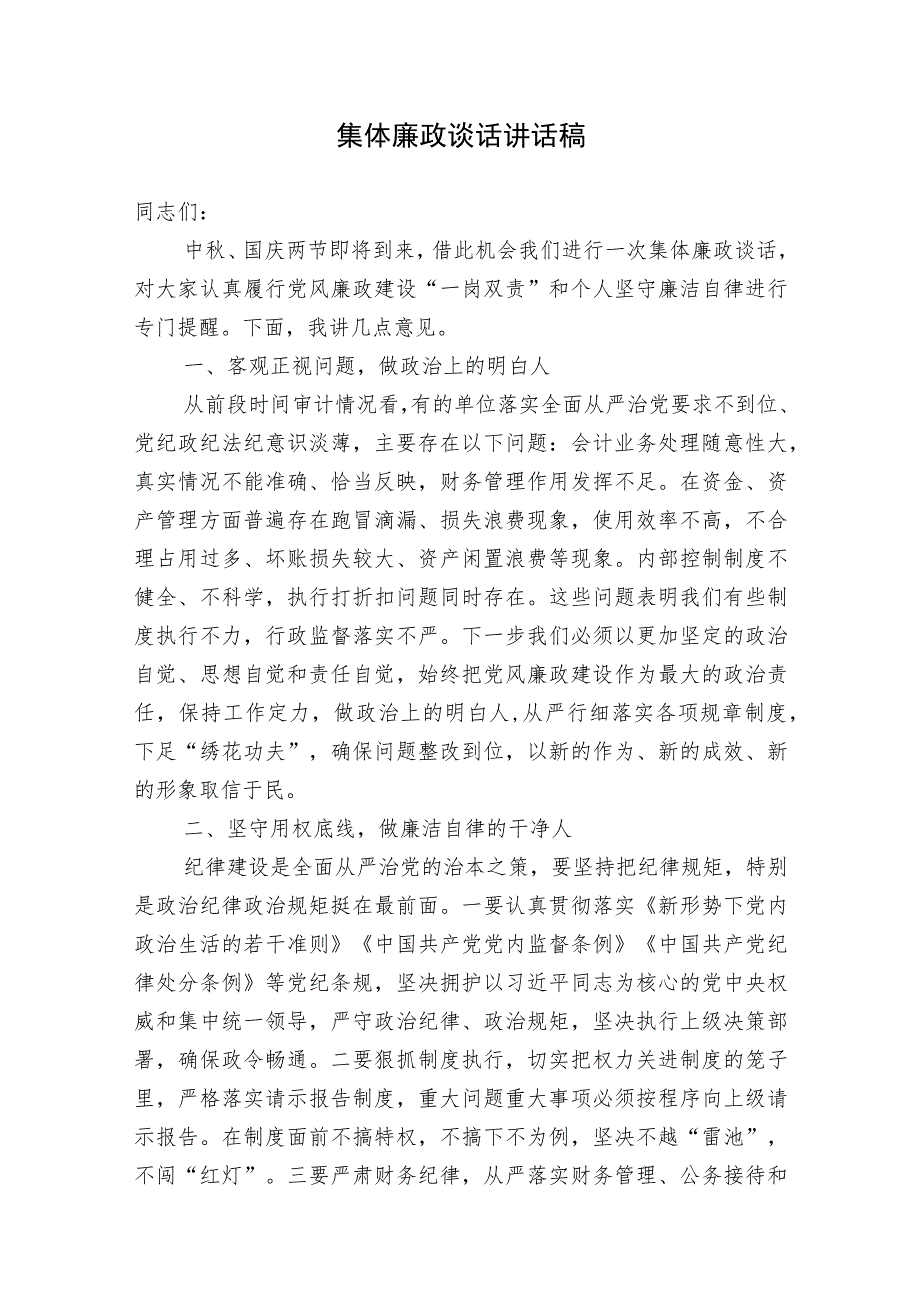 集体廉政谈话讲话稿
同志们：
中秋、国庆两节即将到来，借此机会我们进行一次集体廉政谈话，
对大家认真履行党风廉政建设“一岗双责”和个人坚守廉洁自律进行
专门提醒。下面，我讲几点意见。
一、客观正视问题，做政治上的明白人
从前段时间审计情况看,有的单位落实全面从严治党要求不到位、
党纪政纪法纪意识淡薄，主要存在以下问题：会计业务处理随意性大，
真实情况不能准确、恰当反映，财务管理作用发挥不足。在资金、资
产管理方面普遍存在跑冒滴漏、损失浪费现象，使用效率不高，不合
理占用过多、坏账损失较大、资产闲置浪费等现象。内部控制制度不
健全、不科学，执行打折扣问题同时存在。这些问题表明我们有些制
度执行不力，行政监督落实不严。下一步我们必须以更加坚定的政治
自觉、思想自觉和责任自觉，始终把党风廉政建设作为最大的政治责
任，保持工作定力，做政治上的明白人,从严行细落实各项规章制度，
下足“绣花功夫”，确保问题整改到位，以新的作为、新的成效、新
的形象取信于民。
二、坚守用权底线，做廉洁自律的干净人
纪律建设是全面从严治党的治本之策，要坚持把纪律规矩，特别
是政治纪律政治规矩挺在最前面。一要认真贯彻落实《新形势下党内
政治生活的若干准则》《中国共产党党内监督条例》《中国共产党纪
律处分条例》等党纪条规，坚决拥护以习近平同志为核心的党中央权
威和集中统一领导，严守政治纪律、政治规矩，坚决执行上级决策部
署，确保政令畅通。二要狠抓制度执行，切实把权力关进制度的笼子
里，严格落实请示报告制度，重大问题重大事项必须按程序向上级请
示报告。在制度面前不搞特权，不搞下不为例，坚决不越“雷池”，
不闯“红灯”。三要严肃财务纪律，从严落实财务管理、公务接待和